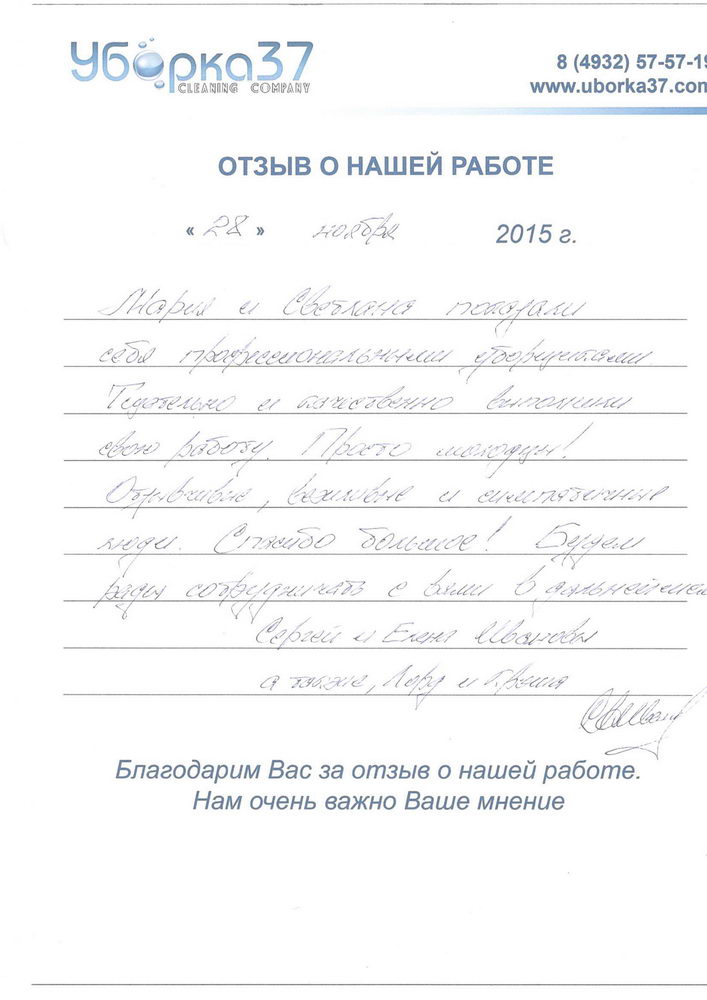 Уборка37
CLEANING COMPANY
8 (4932) 57-57-19
www.uborka37.com
ОТЗЫВ О НАШЕЙ РАБОТЕ
« 28 » ноября 2015 г.
Мария и Светлана показали
себя профессиональными уборщицами.
Тщательно и качественно выполнили
свою работу. Просто молодцы!
Отзывчивые, вежливые и симпатичные
люди. Спасибо большое! Будем
рады сотрудничать с вами в дальнейшем
Сергей и Елена Ивановы
а также, Лорд и
Благодарим Вас за отзыв о нашей работе.
Нам очень важно Ваше мнение